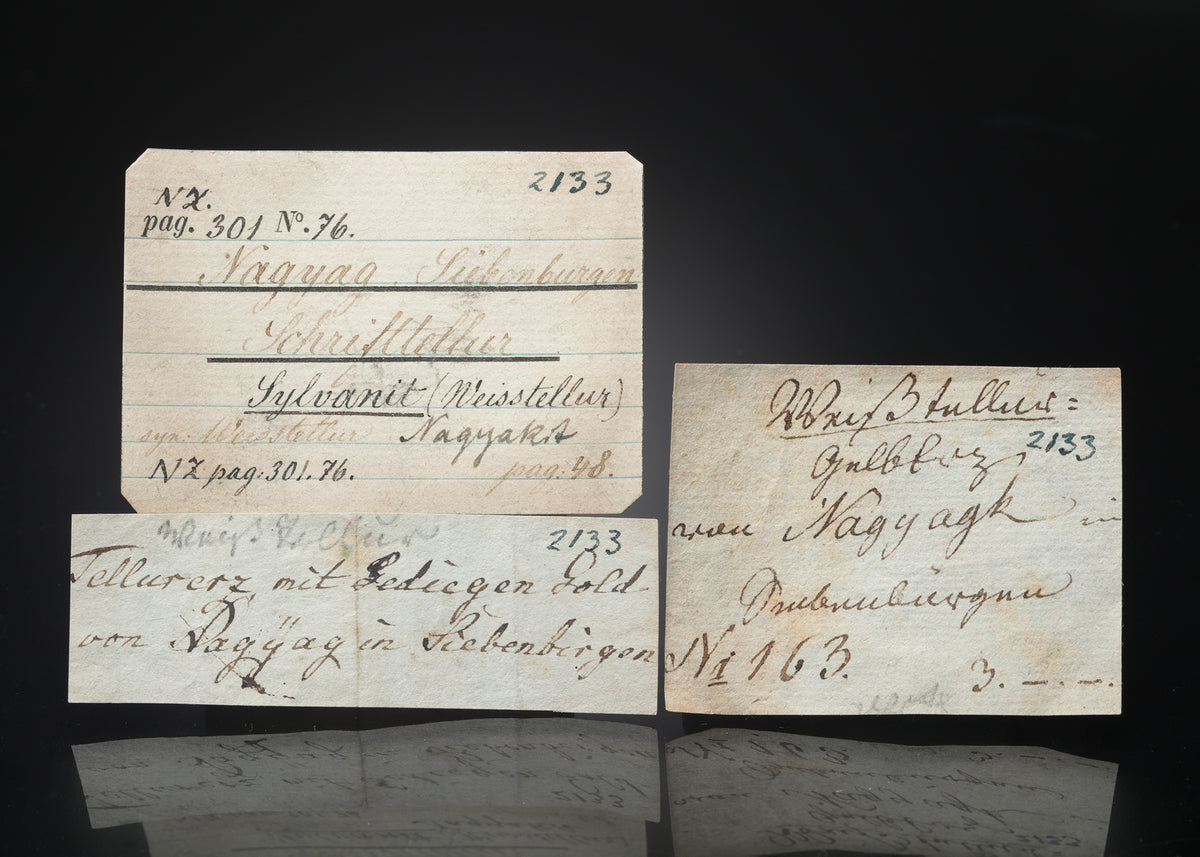 2133
NZ.
pag. 301 No. 76.
Nagyag Siebenburgen
Schrifttellur
Sylvanit (Weisstellur)
syn: Weisstellur Nagyakit
NZ pag: 301. 76. pag: 48.
Weiß tellur
2133
Tellurerz mit Gediegen Gold
von Nagÿag in Siebenbirgen
Weiß tellur=
Gelberz
2133
von Nagyagk in
Siebenbürgen
No 163.
3. –.–.